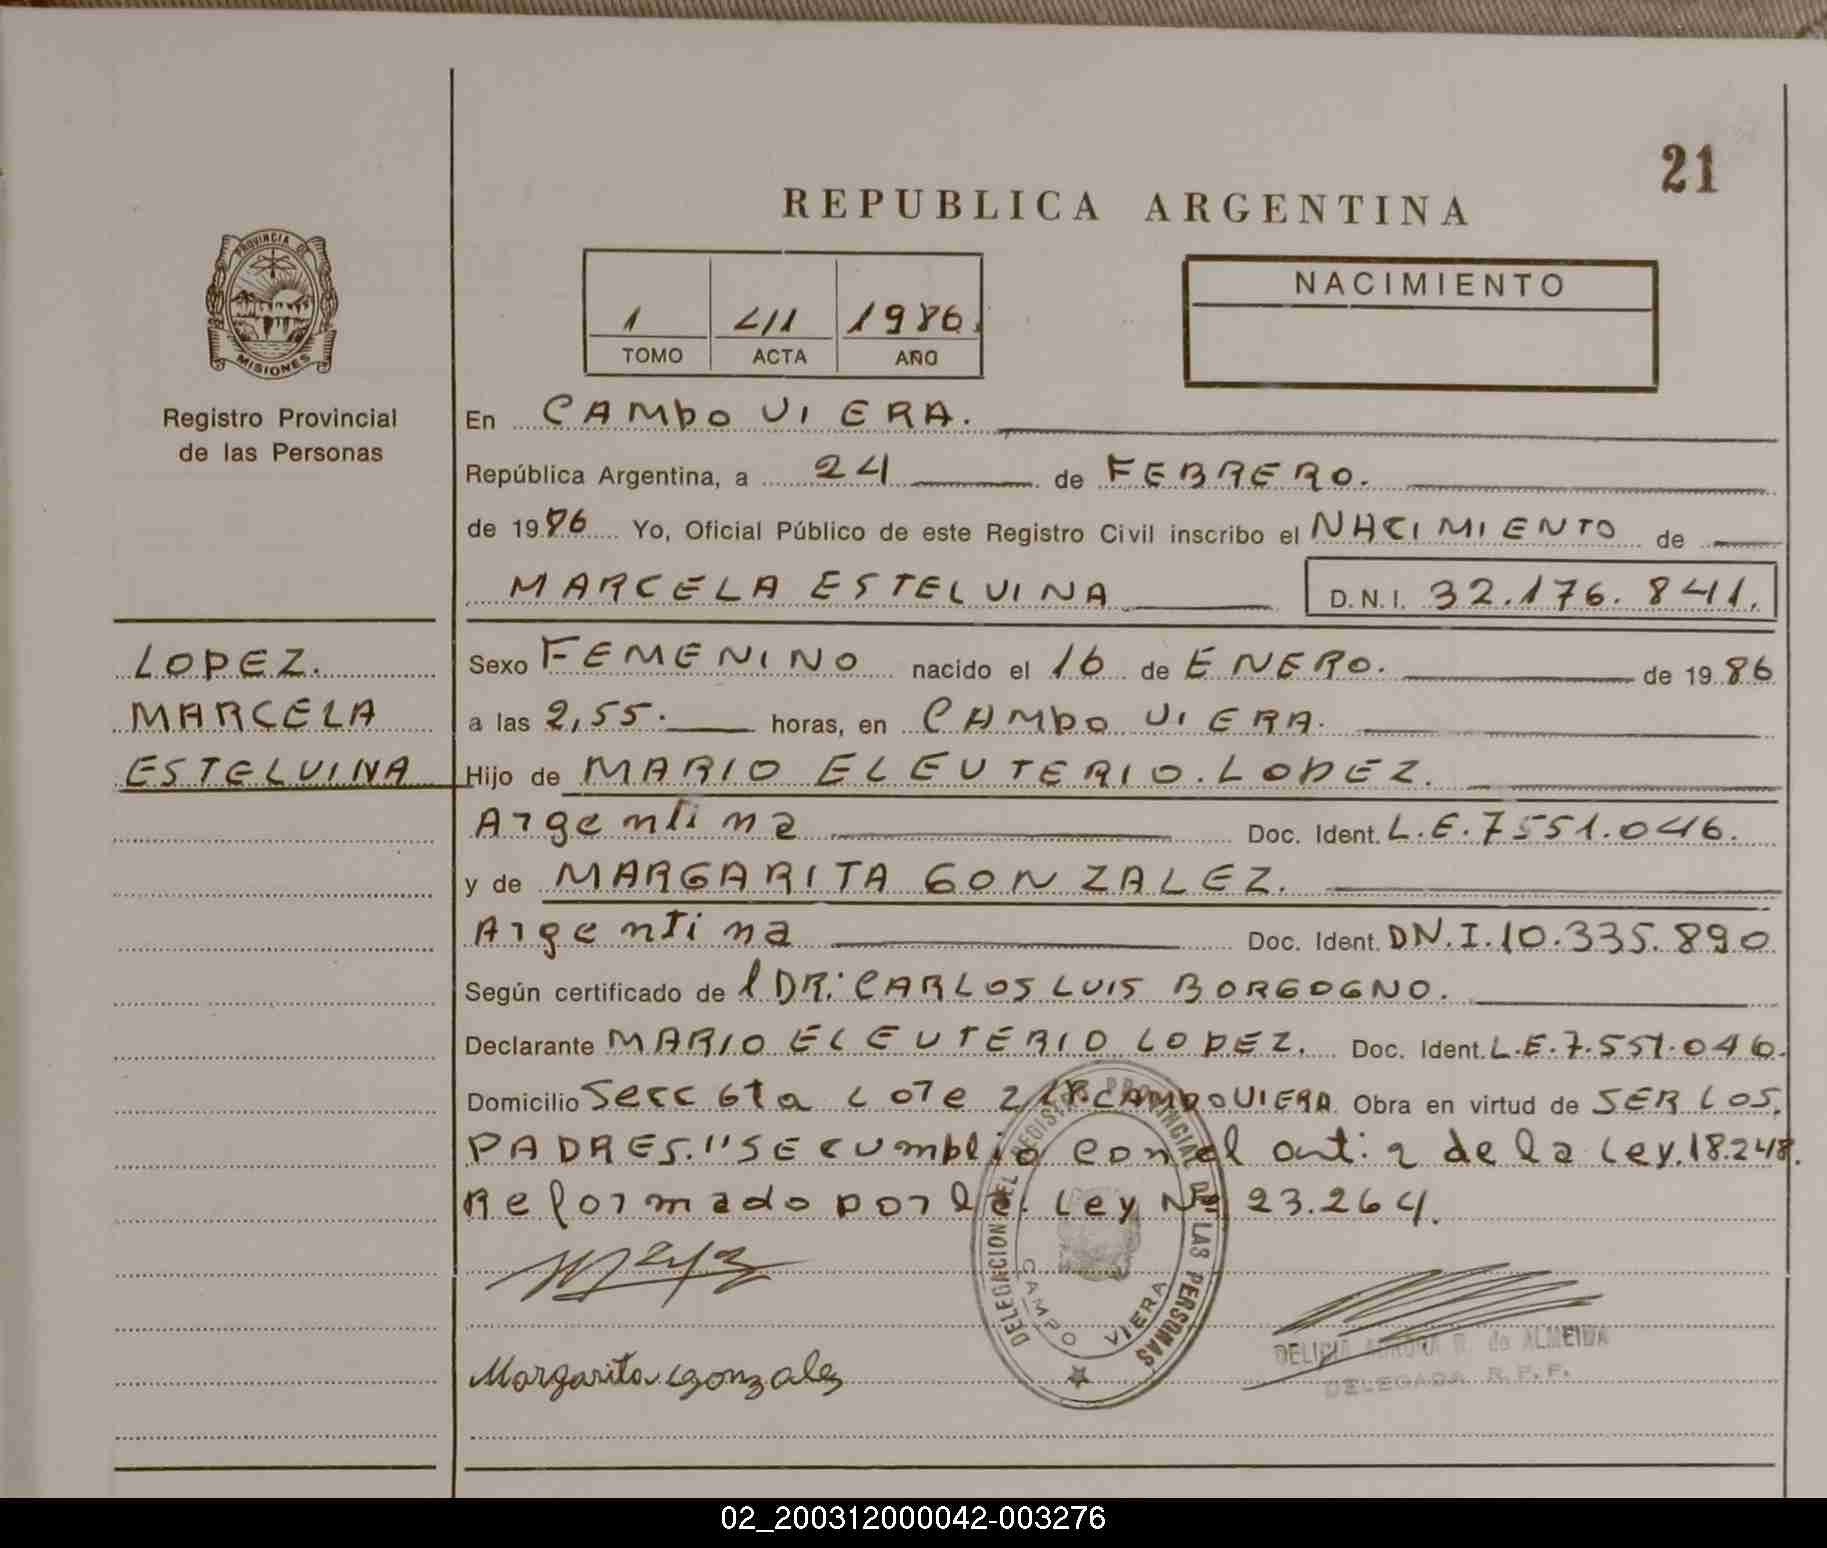 21
REPUBLICA ARGENTINA
PROVINCIA DE
MISIONES
Registro Provincial
de las Personas
1 41 1986.
TOMO ACTA AÑO
NACIMIENTO
En CAMPO VIERA.
República Argentina, a 24 de FEBRERO.
de 1986 Yo, Oficial Público de este Registro Civil inscribo el NACIMIENTO de
MARCELA ESTELVINA D.N.I. 32.176.841.
LOPEZ.
MARCELA
ESTELVINA
Sexo FEMENINO nacido el 16 de ENERO. de 1986
a las 2,55. horas, en CAMPO VIERA.
Hijo de MARIO ELEUTERIO. LOPEZ.
Argentina Doc. Ident. L.E.7551.046.
y de MARGARITA GONZALEZ.
Argentina Doc. Ident. DN.I.10.335.890
Según certificado de l DR: CARLOS LUIS BORGOGNO.
Declarante MARIO ELEUTERIO LOPEZ. Doc. Ident. L.E.7.551.046.
Domicilio Secc 6ta Lote CAMPO VIERA Obra en virtud de SER LOS.
PADRES. "SE cumplió con el art: 2 de la Ley.18.248.
Reformado por la. Ley Nº 23.264.
DELEGACION DEL REGISTRO PROVINCIAL DE LAS PERSONAS
CAMPO VIERA
Margarita Gonzalez
DELICIA AURORA de ALMEIDA
DELEGADA R.P.P.
02_200312000042-003276